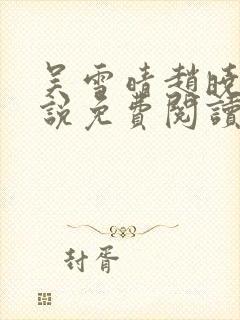 吴雪晴趙晓
說免費閱讀
封胥